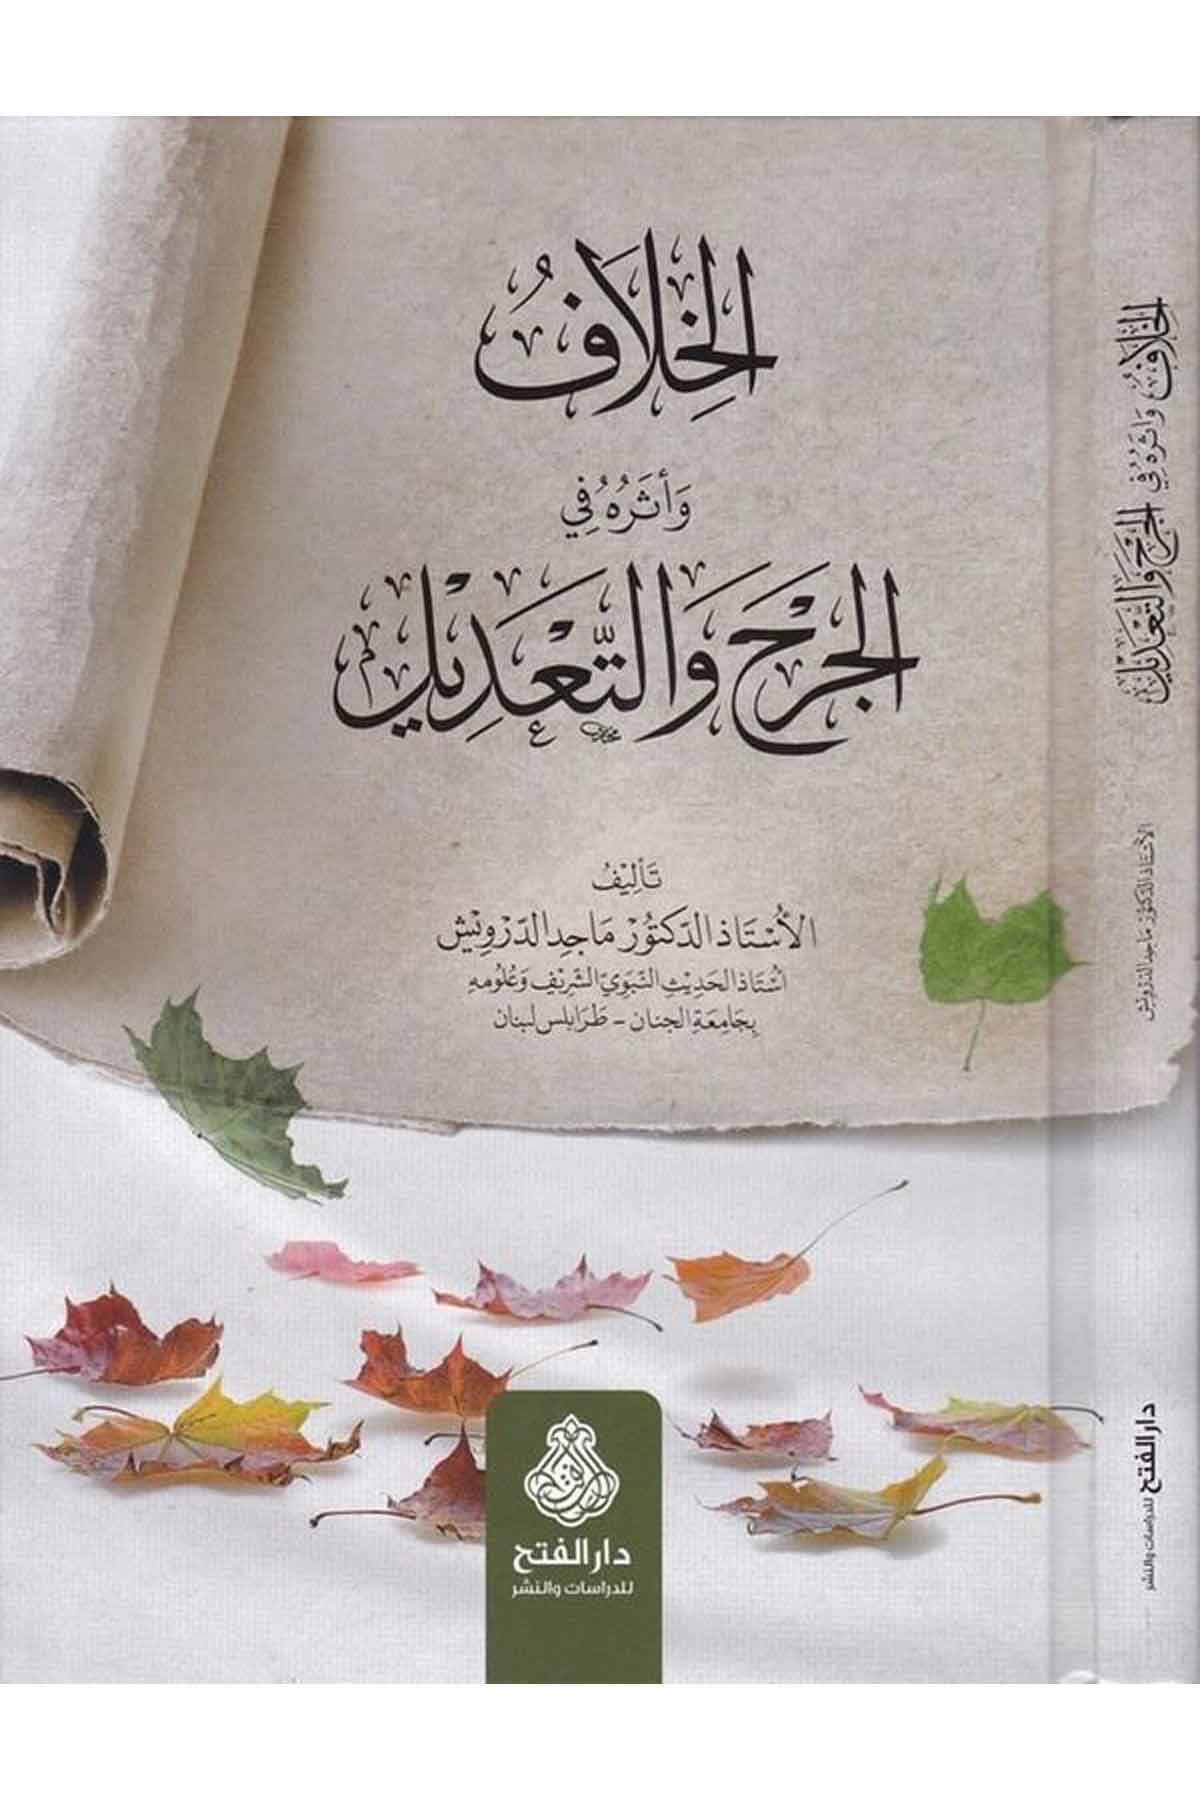 الخِلَافُ
وَأثَرُهُ فِي
الجَرْحِ وَالتَّعْدِيلِ
تَأليْفُ
الأُسْتَاذ الدّكتُوْر مَاجِد الدّرْوِيْش
أسْتَاذ الحَدِيْثِ النّبَوِيّ الشّرِيْفِ وَعُلُومِهِ
بِجَامِعَةِ الجنان – طَرَابلس لبنان
دار الفتح
للدراسات والنشر
الخِلَافُ وَأثَرُهُ فِي الجَرْحِ وَالتَّعْدِيلِ
الأُسْتَاذ الدّكتُوْر مَاجِد الدّرْوِيْش
دار الفتح للدراسات والنشر